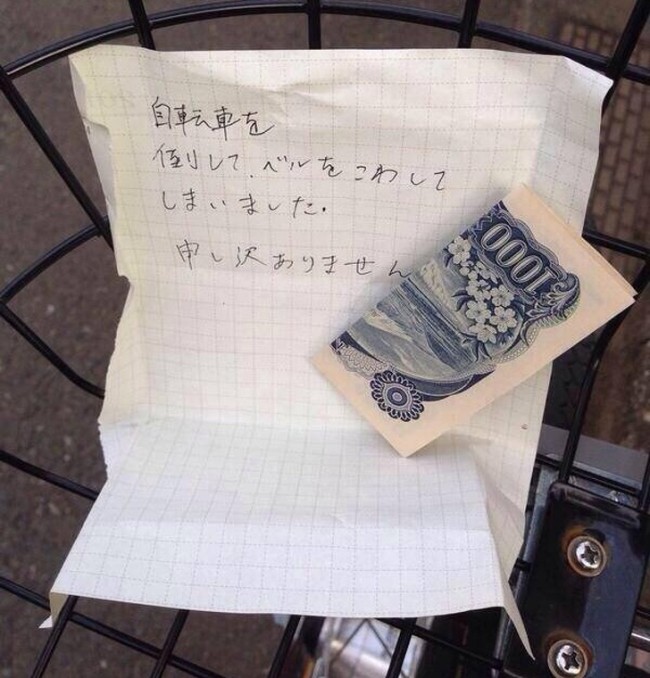 自転車を
倒して、ベルをこわして
しまいました。
申し訳ありません
1000